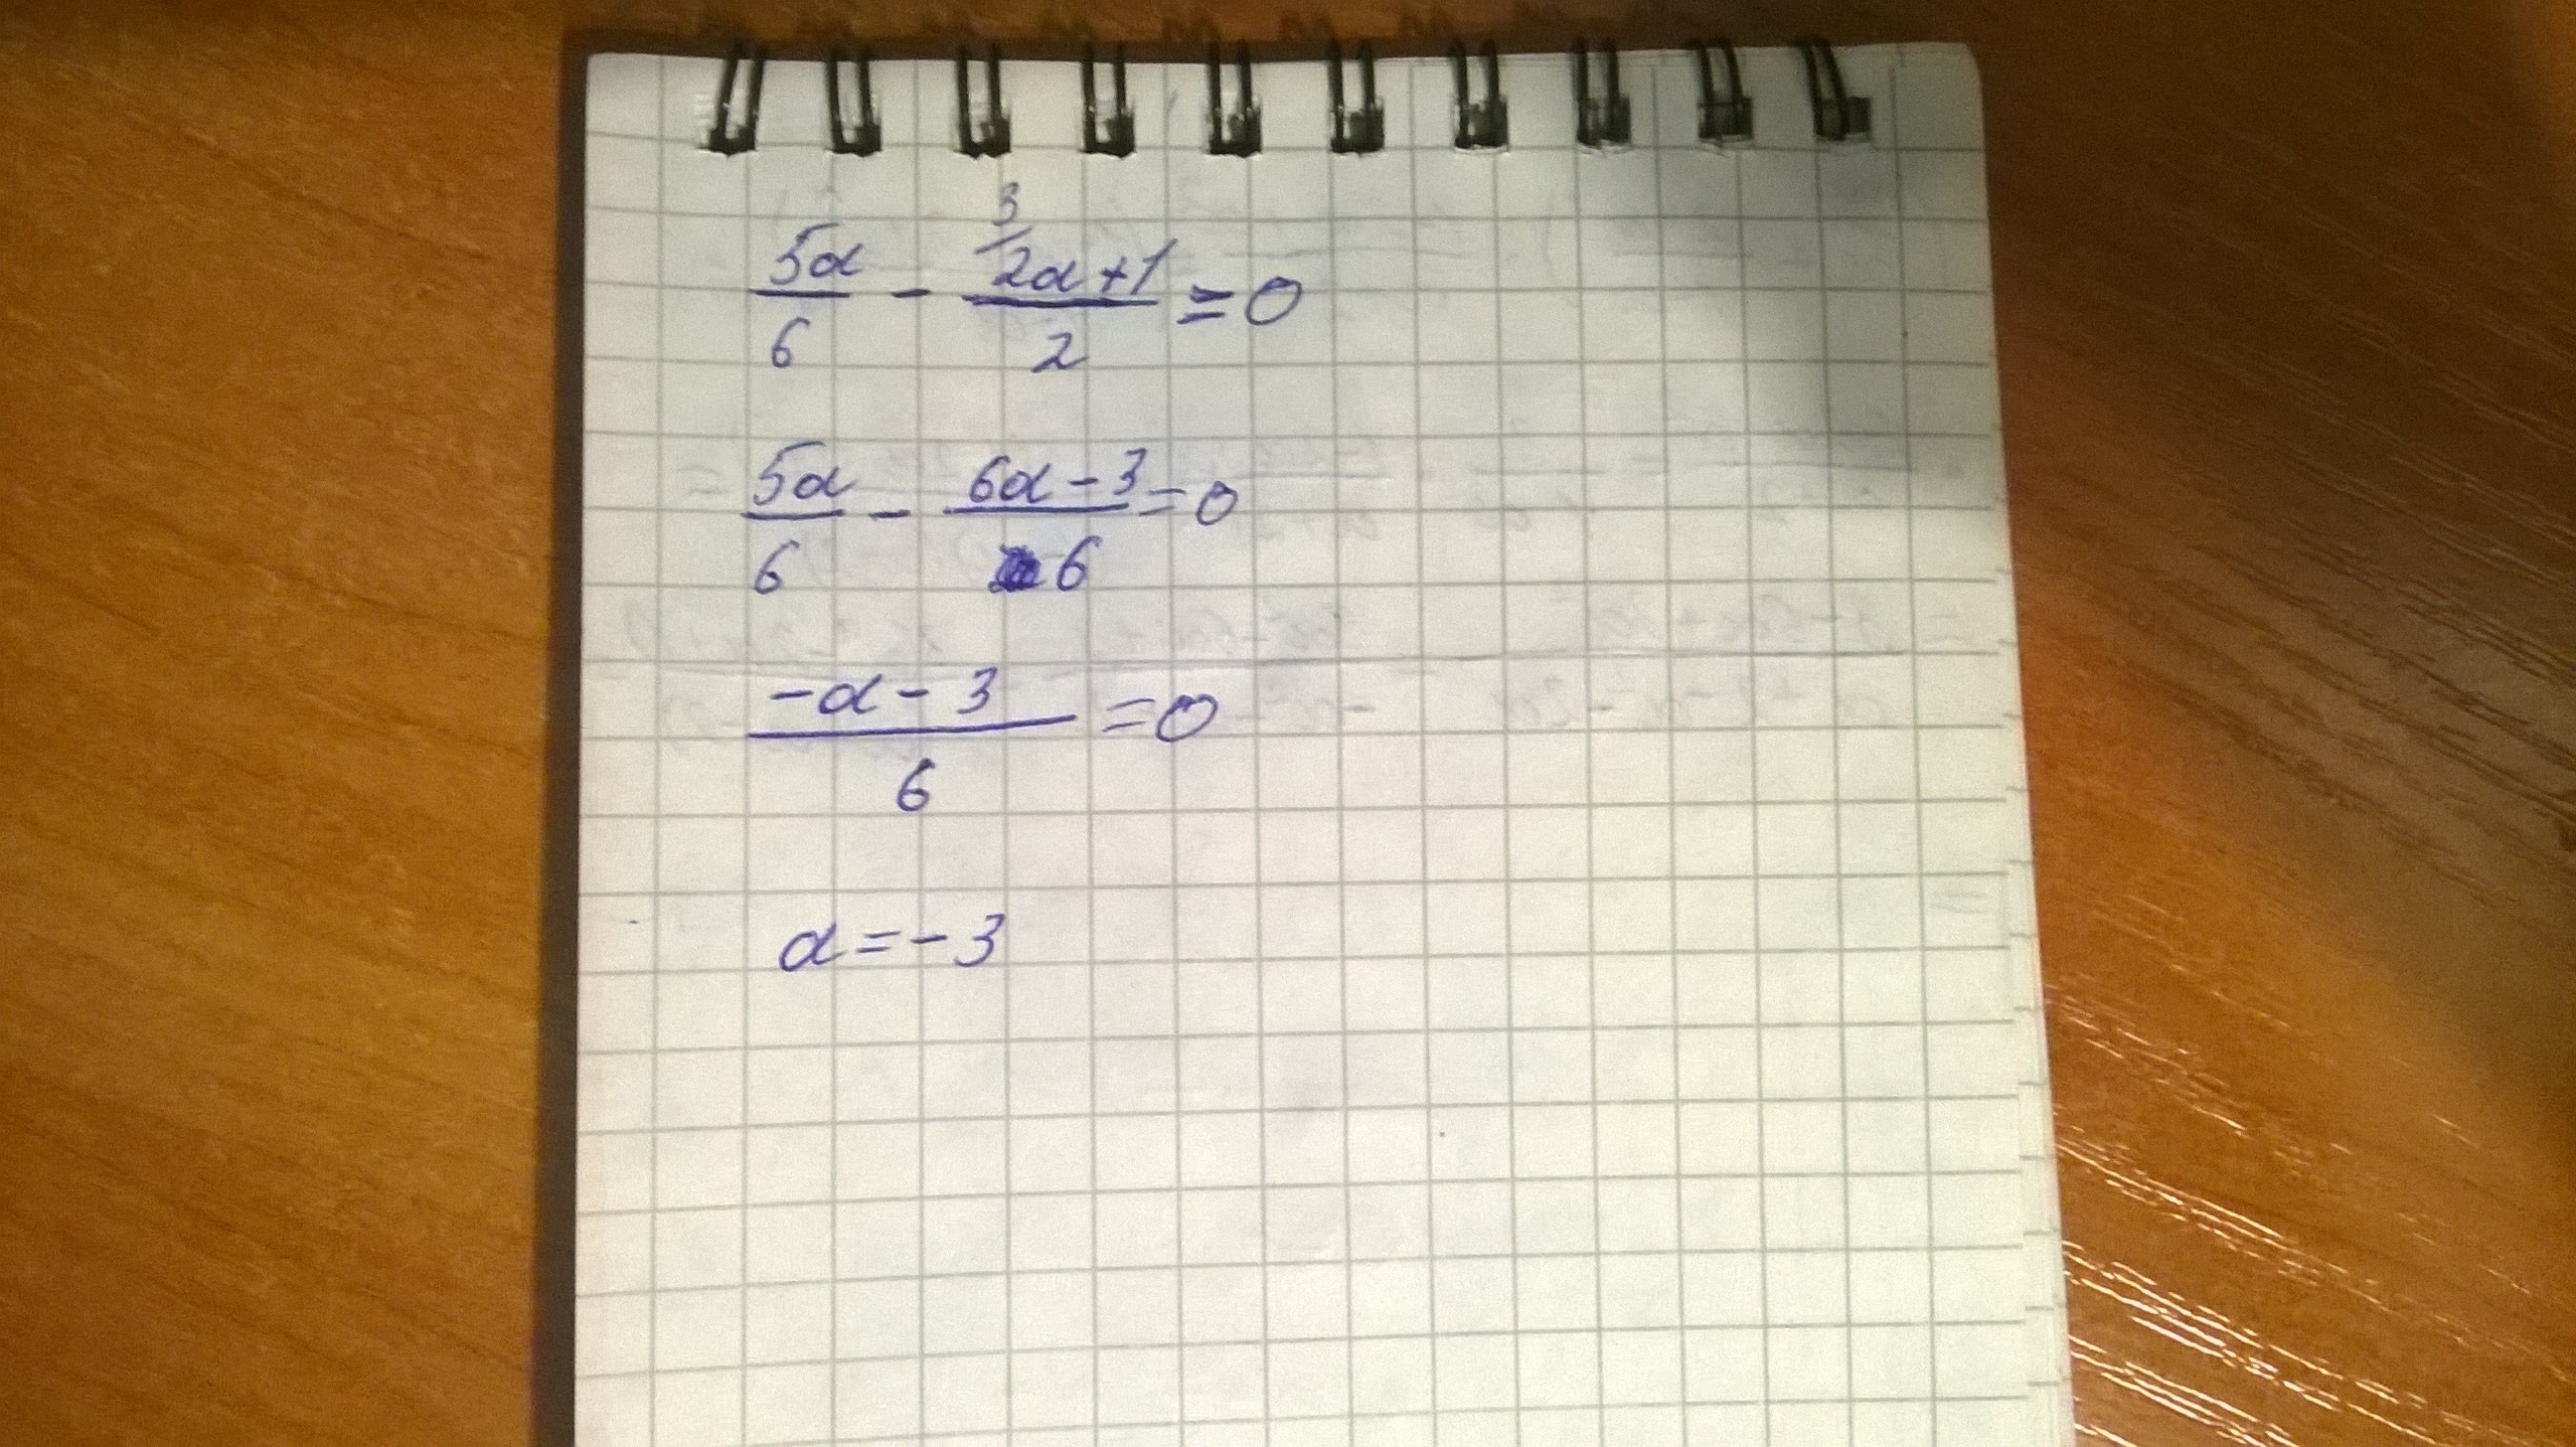 5a/6 - ³⁄(2a+1)/2 = 0
5a/6 - (6a-3)/6 = 0
(-a-3)/6 = 0
a = -3